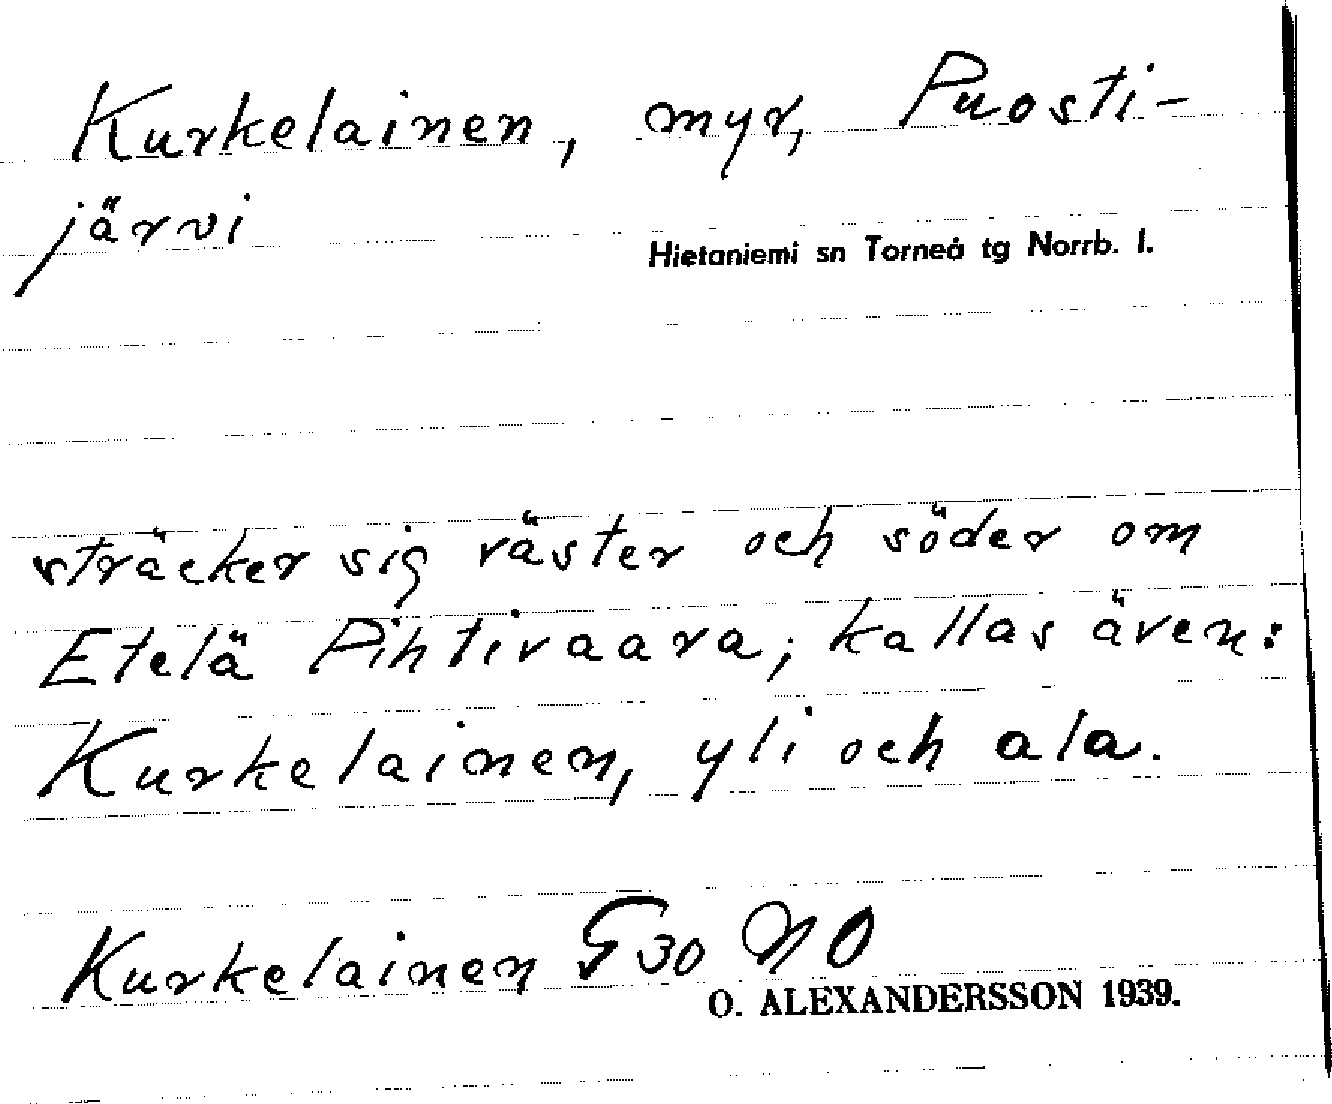 Kurkelainen, myr, Puosti-
järvi
Hietaniemi sn Torneå tg Norrb. l.
sträcker sig väster och söder om
Etelä Pihtivaara; kallas även:
Kurkelainen, yli och ala.
Kurkelainen G30 NO
O. ALEXANDERSSON 1939.